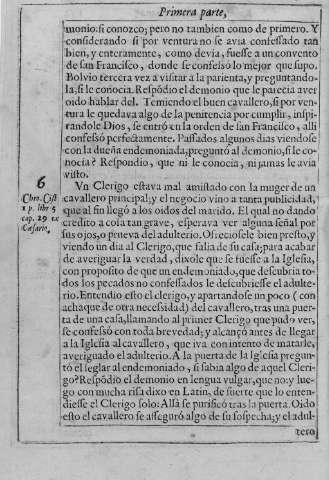 Primera parte,
monio: si conozco; pero no tambien como de primero. Y
considerando si por ventura no se avia confessado tan
bien, y enteramente, como devia, fuesse a un convento
de san Francisco, donde se confesso lo mejor que supo.
Bolvio tercera vez a visitar a la parienta, y preguntando-
la, si le conocia. Respōdio el demonio que le parecia aver
oido hablar del. Temiendo el buen cavallero, si por ven-
tura le quedava algo de la penitencia por cumplir, inspi-
randole Dios, se entrò en la orden de san Francisco, alli
confessò perfectamente. Passados algunos dias viendose
con la dueña endemoniada, preguntò al demonio, si le co-
nocia? Respondio, que ni le conocia, ni jamas le avia
visto.
6
Chro. Cist
1 p. libr 5
cap. 29 ex
Cæsario.
Vn Clerigo estava mal amistado con la muger de un
cavallero principal; y el negocio vino a tanta publicidad,
que al fin llegò a los oidos del marido. El qual no dando
credito a cosa tan grave, esperava ver alguna señal por
sus ojos, o prueva del adulterio. Ofreciosele bien presto, y
viendo un dia al Clerigo, que salia de su casa; para acabar
de averiguar la verdad, dixole que se fuesse a la Iglesia,
con proposito de que un endemoniado, que descubria to-
dos los pecados no confessados le descubriesse el adulte-
rio. Entendio esto el clerigo, y apartandose un poco (con
achaque de otra necessidad) del cavallero, tras una puer-
ta de una casa, llamando al primer Clerigo que pudo ver,
se confessò con toda brevedad; y alcançò antes de llegar
a la Iglesia al cavallero, que iva con intento de matarle,
averiguado el adulterio. A la puerta de la Iglesia pregun-
tò el seglar al endemoniado, si sabia algo de aquel Cleri-
go? Respōdio el demonio en lengua vulgar, que no: y lue-
go con mucha risa dixo en Latin, de suerte que lo enten-
diesse el Clerigo solo: Allà se purificò tras la puerta. Oido
esto el cavallero se assegurò algo de su sospecha; y el adul-
tero